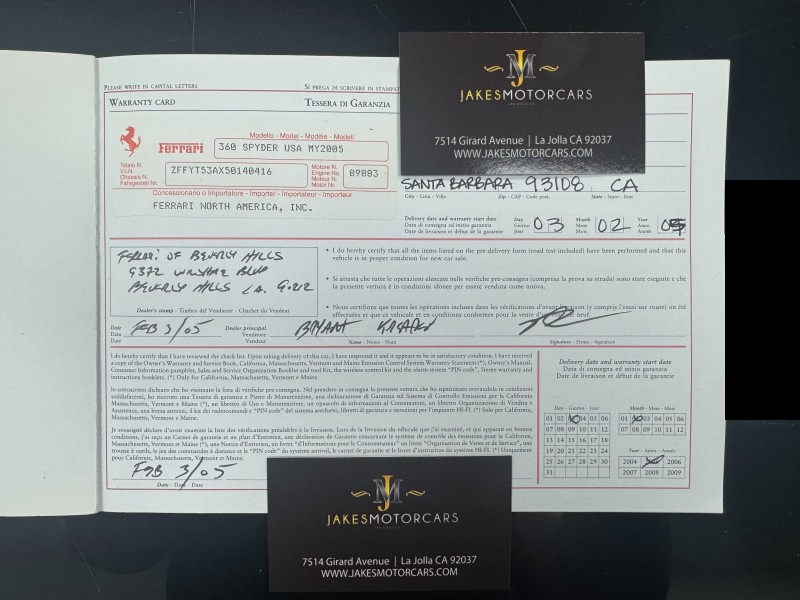 PLEASE WRITE IN CAPITAL LETTERS
SI PREGA DI SCRIVERE IN STAMPAT
WARRANTY CARD
TESSERA DI GARANZIA
Ferrari
Modello - Model - Modèle - Modell
360 SPYDER USA MY2005
Telaio N.
V.I.N.
Chassis N.
Fahrgestell Nr.
ZFFYT53AX50140416
Motore N.
Engine No.
Moteur N.
Motor Nr.
89883
Concessionario o Importatore - Importer - Importateur - Importeur
FERRARI NORTH AMERICA, INC.
JM
JAKESMOTORCARS
SAN DIEGO
7514 Girard Avenue | La Jolla CA 92037
WWW.JAKESMOTORCARS.COM
SANTA BARBARA 93108 CA
City - Città - Ville
Zip - CAP - Code post.
State - Stato - État
Delivery date and warranty start date
Data di consegna ed inizio garanzia
Date de livraison et début de la garantie
Day
Giorno
Jour
03
Month
Mese
Mois
02
Year
Anno
Année
FERRARI OF BEVERLY HILLS
9372 WILSHIRE BLVD
BEVERLY HILLS CA. 90212
Dealer's stamp - Timbro del Venditore - Cachet du Vendeur
• I do hereby certify that all the items listed on the pre-delivery form (road test included) have been performed and that this
vehicle is in proper condition for new car sale.
• Si attesta che tutte le operazioni elencate nelle verifiche pre-consegna (compresa la prova su strada) sono state eseguite e che
la presente vettura è in condizioni idonee per essere venduta come nuova.
• Nous certifions que toutes les opérations incluses dans les vérifications d'avant livraison (y compris l'essai sur route) ont été
effectuées et que ce véhicule et en conditions conformes pour la vente du neuf.
Date
Data
Date
FEB 3/05
Dealer principal
Venditore
Vendeur
BRYANT
Name - Nome - Nom
Signature - Firma - Signature
I do hereby certify that I have reviewed the check list. Upon taking delivery of this car, I have inspected it and it appears to be in satisfactory condition, I have received
a copy of the Owner's Warranty and Service Book, California, Massachusetts, Vermont and Maine Emission Control System Warranty Statement (*), Owner's Manual,
Consumer Information pamphlet, Sales and Service Organization Booklet and tool Kit, the wireless control kit and the alarm system "PIN code", Stereo warranty and
instructions booklets. (*) Only for California, Massachusetts, Vermont e Maine.
Io sottoscritto dichiaro che ho visionato la lista di verifiche pre-consegna. Nel prendere in consegna l'auto, l'ho ispezionata trovandola in condizioni
soddisfacenti, ho ricevuto una Tessera di Garanzia e Piano di Manutenzione, una dichiarazione di Garanzia sul Sistema di Controllo Emissioni per la California
Massachusetts, Vermont e Maine (*), un Manuale di Uso e Manutenzione, un opuscolo di informazioni al Consumatore, un libretto Organizzazione di Vendita e
Assistenza, una borsa attrezzi, il kit del radiocomando e "PIN code" del sistema antifurto, libretti di garanzia e istruzioni per l'impianto HI-FI. (*) Solo per California,
Massachusetts, Vermont e Maine.
Je soussigné déclare d'avoir examiné la liste des vérifications préalables à la livraison. Lors de la livraison du véhicule que j'ai examiné, et qui apparaît en bonnes
conditions, j'ai reçu un Carnet de garantie et un plan d'Entretien, une déclaration de Garantie concernant le système de contrôle des émissions pour la California
Massachusetts, Vermont et Maine (*), un Notice d'Entretien, un livret "D'informations pour le Consommateurs" un livret "Organisation de Vente et de Service", une
trousse à outils, le jeu des commandes à distance et le "PIN code" du système antivol, le carnet de garantie et le livret d'instruction du système HI-FI. (*) Uniquement
pour California, Massachusetts, Vermont et Maine.
FEB 3/05
Date - Data - Date
Delivery date and warranty start date
Data di consegna ed inizio garanzia
Date de livraison et début de la garantie
Day - Giorno - Jour
01 02 04 05 06
07 08 09 10 11 12
13 14 15 16 17 18
19 20 21 22 23 24
25 26 27 28 29 30
31
Month - Mese - Mois
01 03 04 05 06
07 08 09 10 11 12
Year - Anno - Année
2004 2006
2007 2008 2009
JM
JAKESMOTORCARS
SAN DIEGO
7514 Girard Avenue | La Jolla CA 92037
WWW.JAKESMOTORCARS.COM